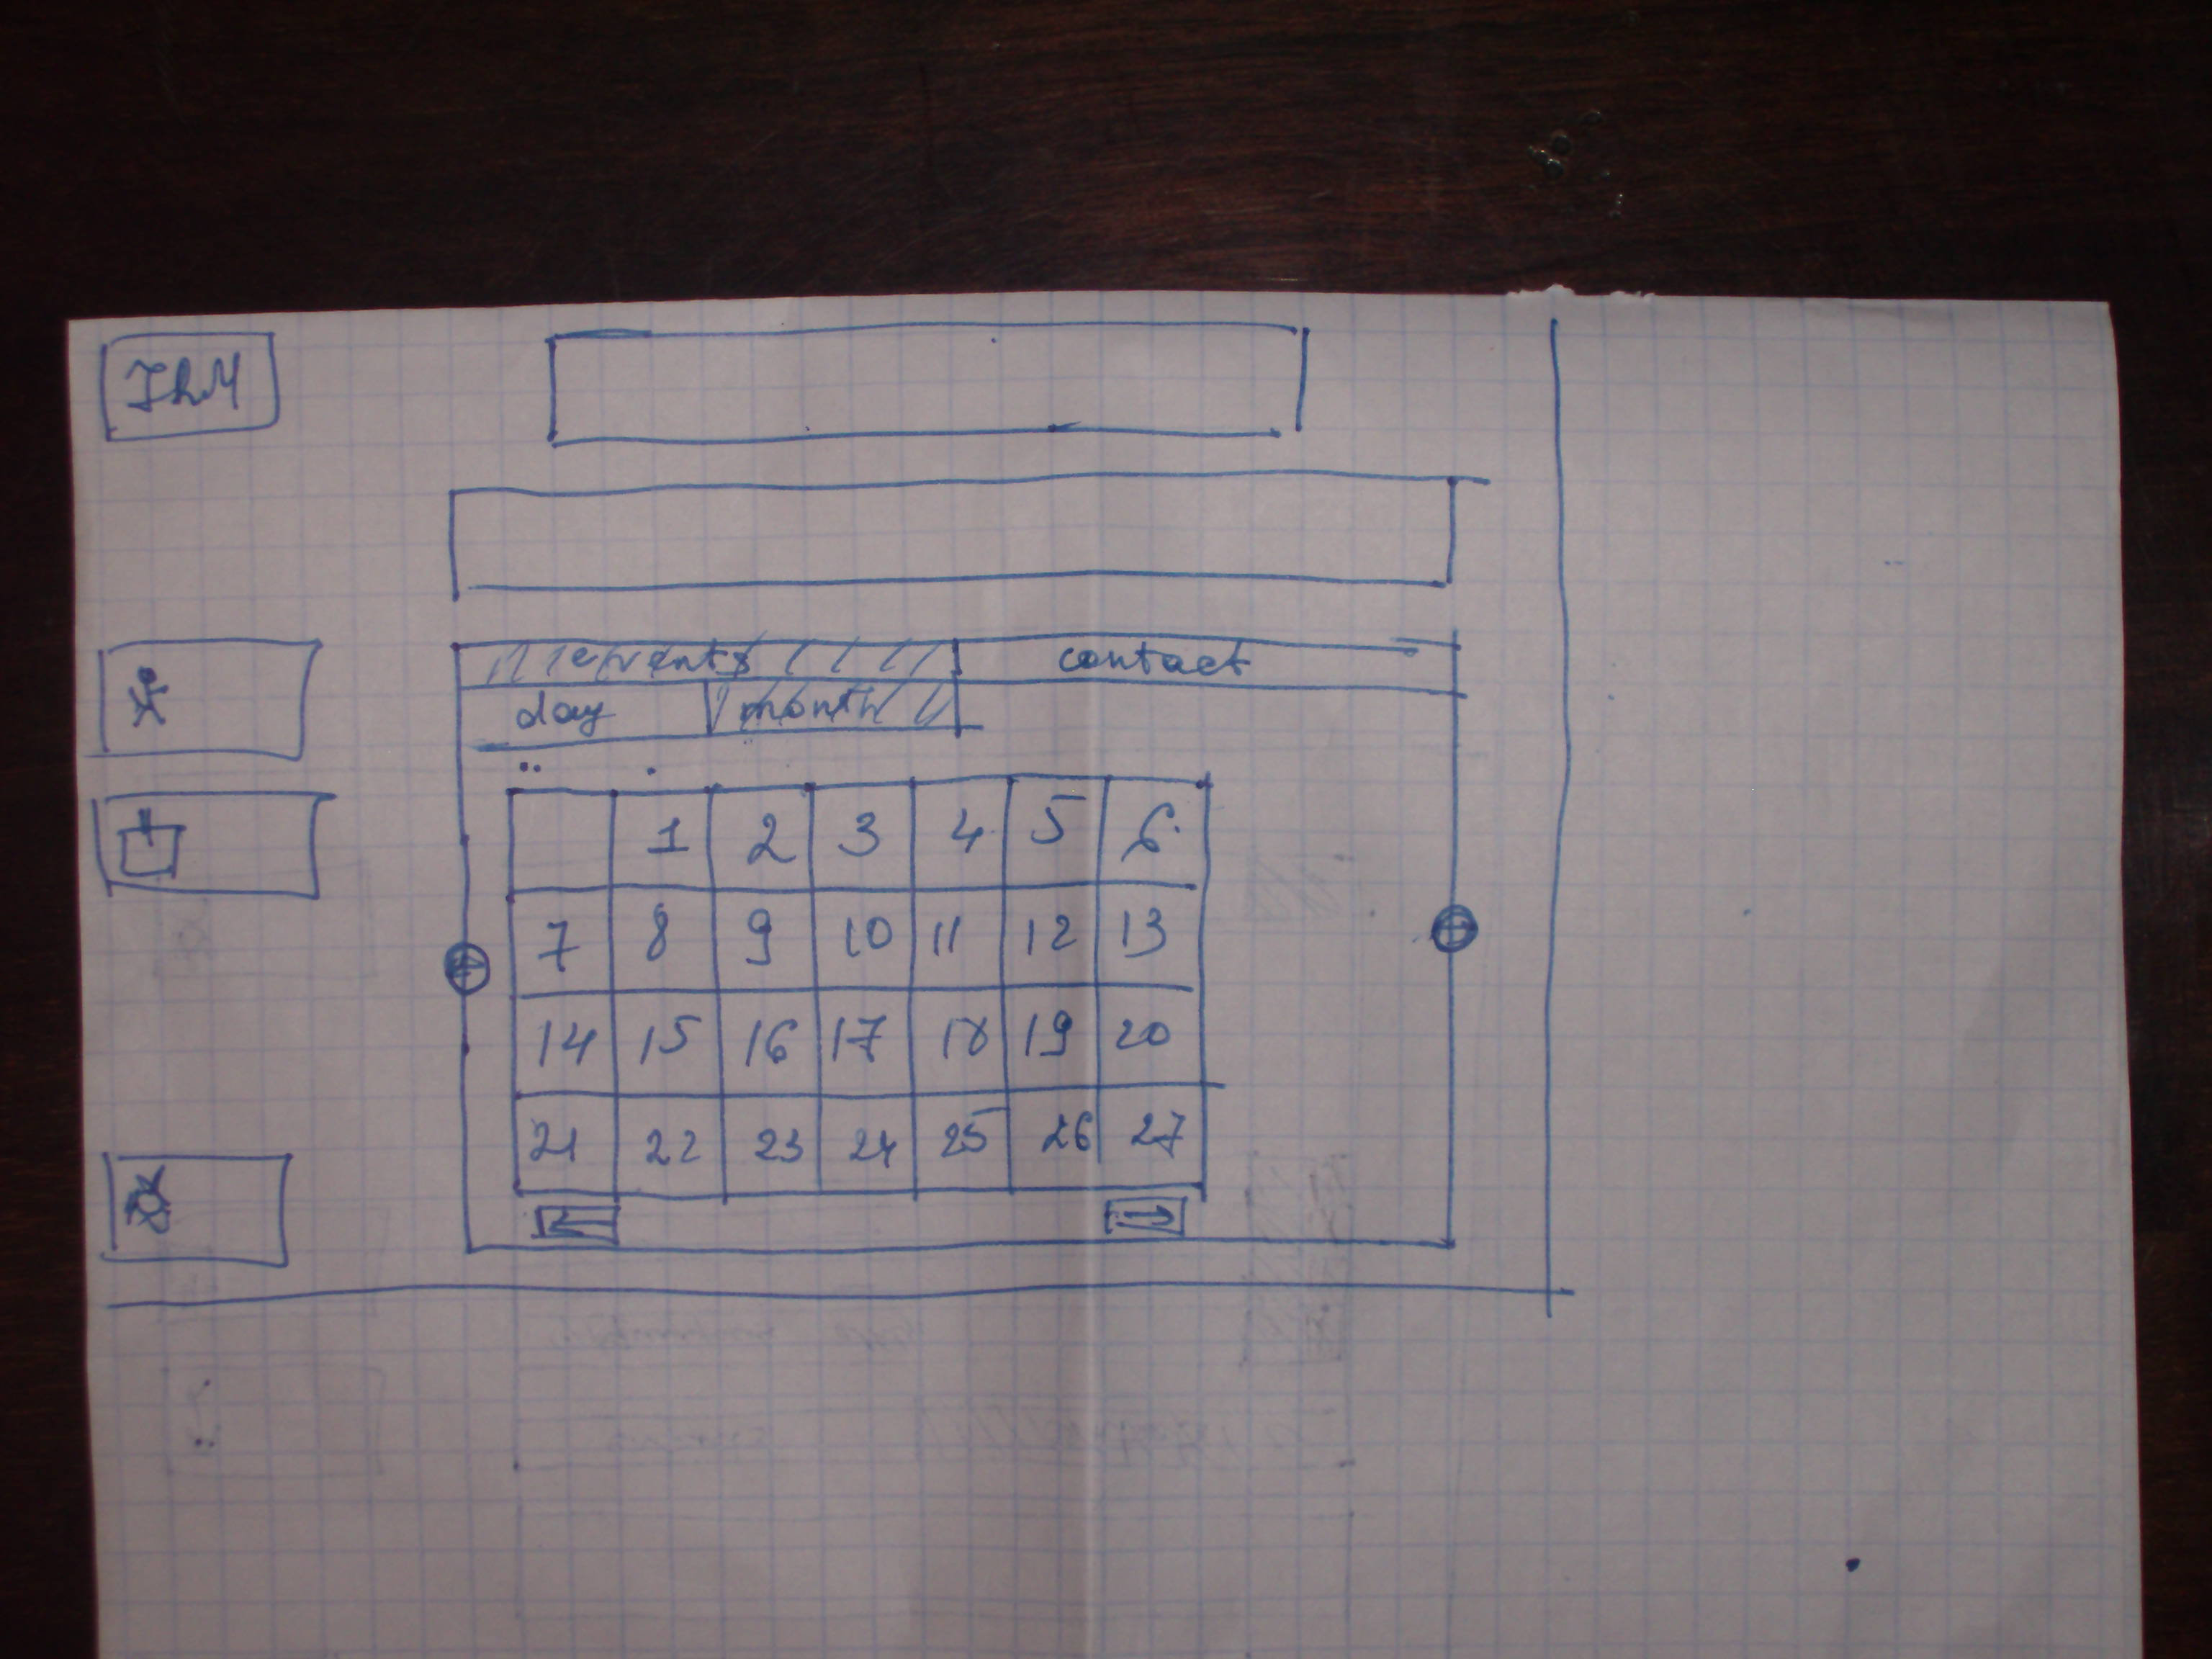 events contact
day month
1 2 3 4 5 6
7 8 9 10 11 12 13
14 15 16 17 18 19 20
21 22 23 24 25 26 27